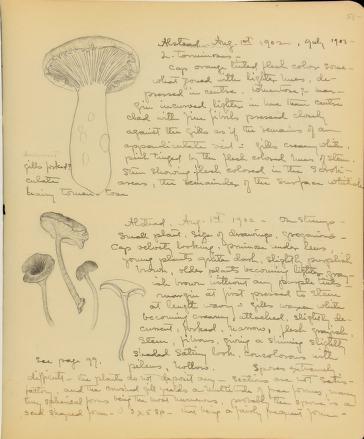 Alstead. Aug. 1st 1902, July 1903 -
L. torminosus -
Cap orange tinted flesh color some-
what zoned with lighter lines, de-
pressed in centre. tomentose, mar-
gin incurved lighter in line than centre
clad with fine fibrils pressed closely
against the gills as if the remains of an
veil - gills creamy white,
pink tinged by the flesh colored lines of stem.
Stem showing flesh colored in the
areas, the remainder of the surface whitish
gills forked?
Alstead. Aug. 1st 1902 - On stump -
Small plant. Size of drawings, gregarious -
Cap velvety looking. pruinose under lens,
young plants quite dark, slightly purplish
brown, older plants becoming lighter gray-
ish brown without any purple tints.
margin at first pressed to stem
at length wavy. Gills waxen white
becoming creamy, attached, slightly de-
current, forked, narrow, flesh grayish
Stem, fibrous, giving a shining slightly
shaded satiny look, concolorous with
pileus, hollow.
See page 99.
Spores extremely
difficult - the plants do not deposit any - Sections are not satis-
factory and the crushed gill yields a multitude of free forms, many
tiny spherical forms being the most numerous, probably their spores,
seed shaped form - this being a fairly frequent form -